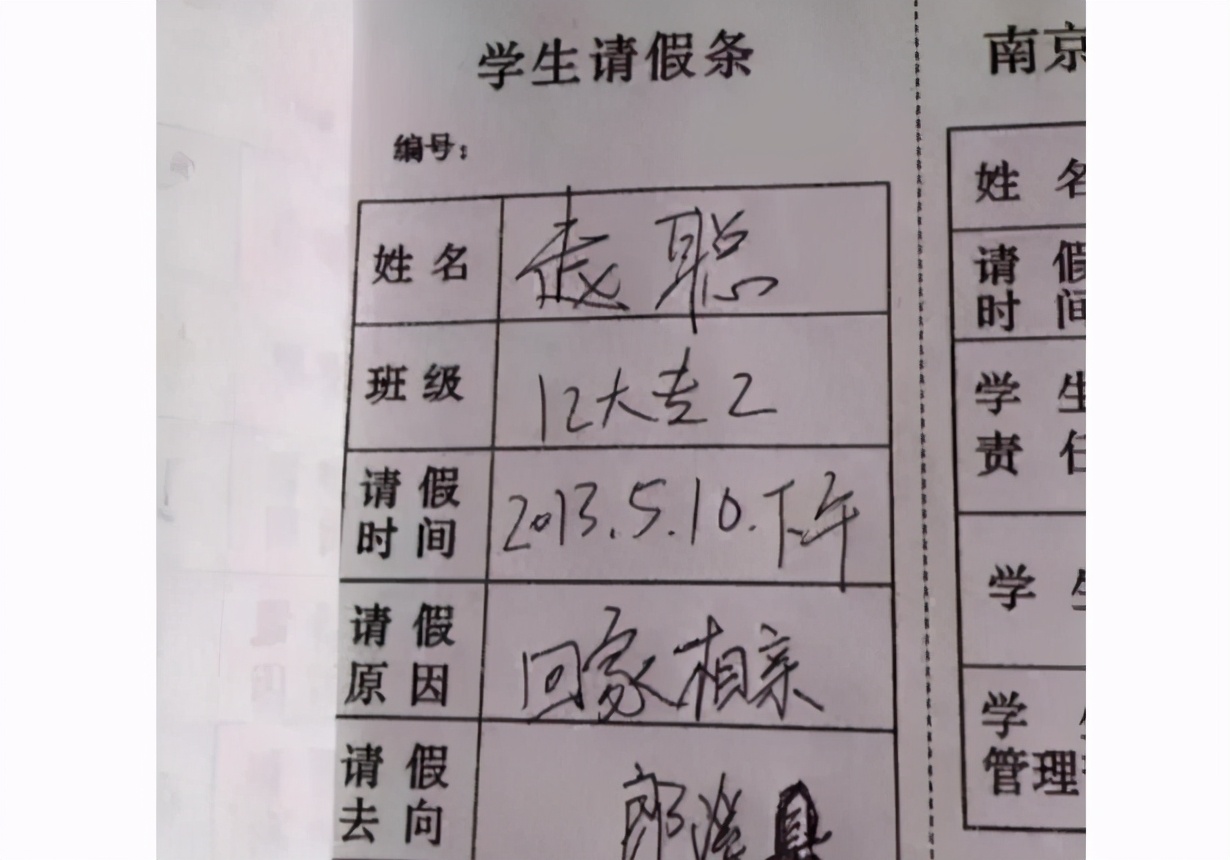 学生请假条
编号:
姓名 赵聪
班级 12大专2
请假时间 2013.5.10.下午
请假原因 回家相亲
请假去向 郎溪县
南京
姓名
请假时间
学生责任
学生
学
管理